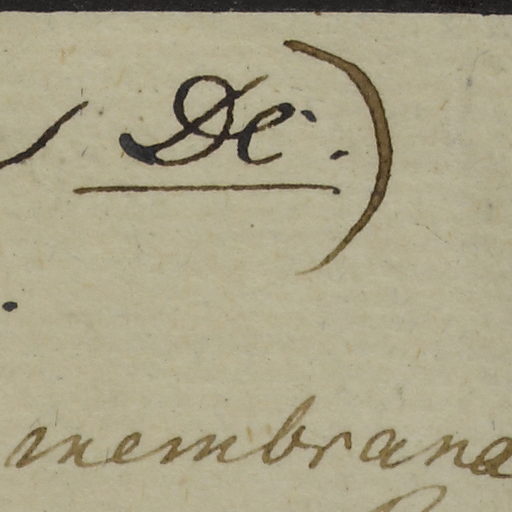 De.)
membrana